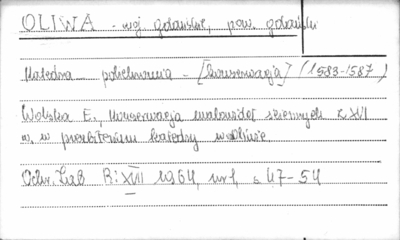 OLIWA - woj. gdańskie, pow. gdański
Katedra - polichromia - [konserwacja] (1583-1587)
Wolska E., Konserwacja malowideł ściennych z XVI
w. w prezbiterium katedry w Oliwie.
Ochr. Zab R: XVII 1964, nr 1, s 47-54